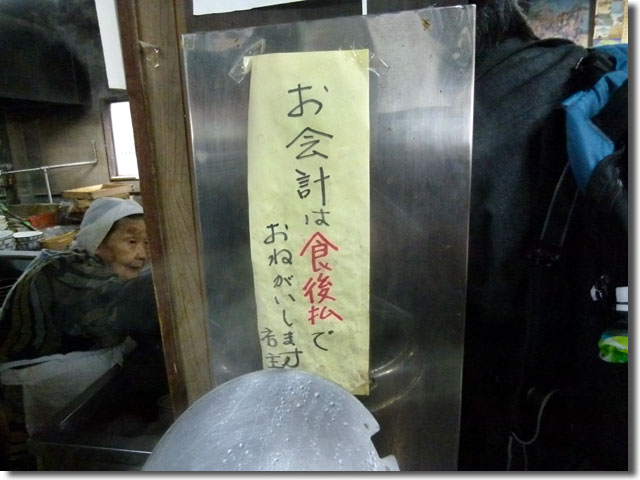 お会計は食後払で
おねがいします
店主